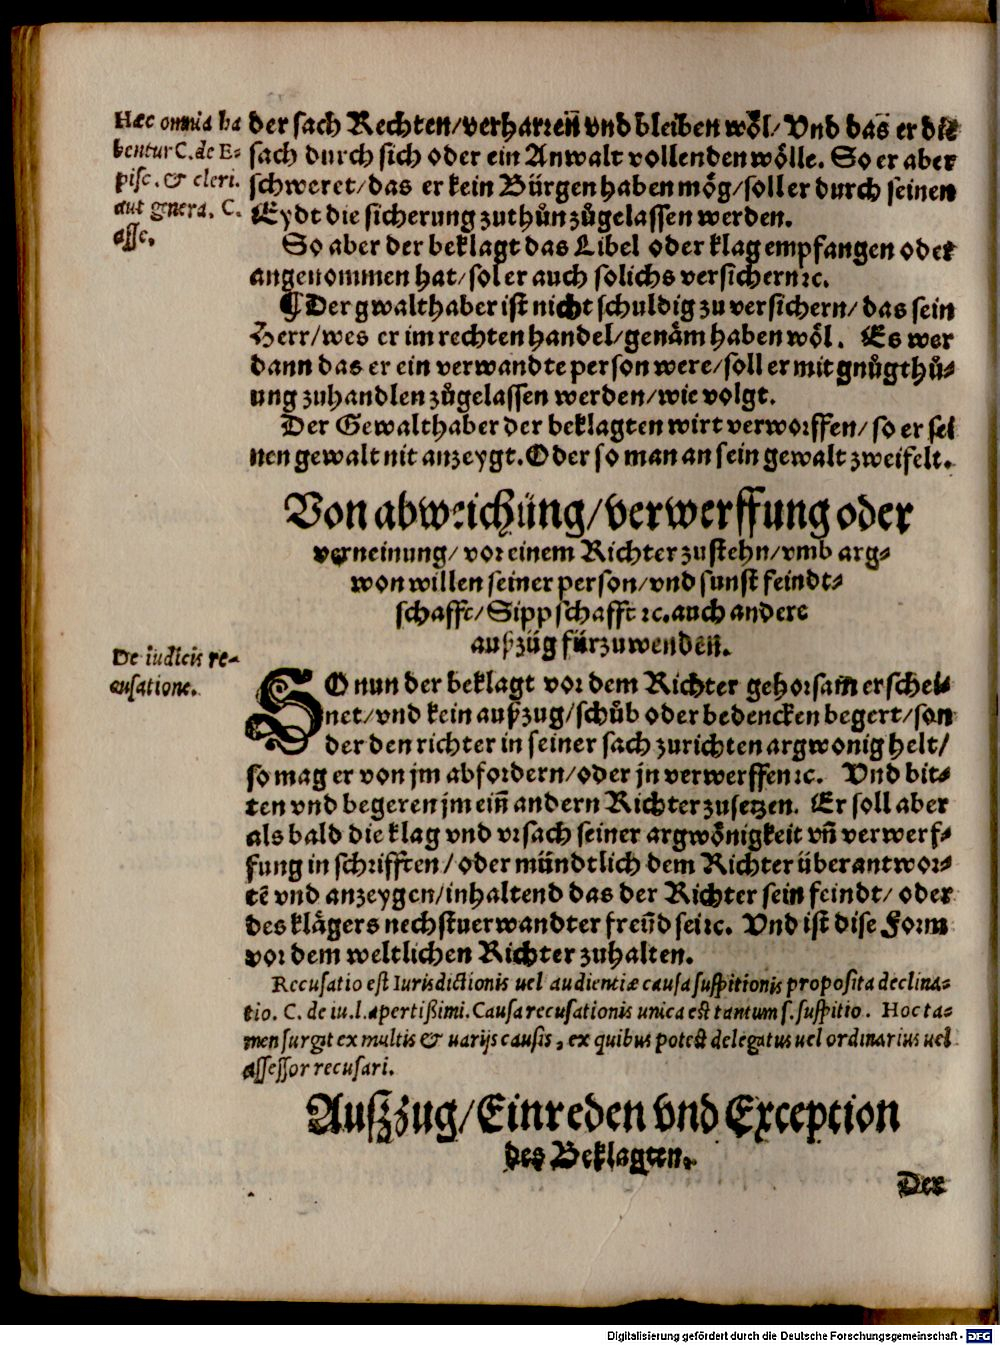 Hæc omnia ha
bentur C. de E⸗
pisc. & cleri.
aut genera. C.
asse.
der sach Rechten/verharreñ vnd bleiben wöl/Vnd das er die
sach durch sich oder ein Anwalt vollenden wölle. So er aber
schweret/das er kein Bürgen haben mög/soll er durch seinen
Eydt die sicherung zuthůn zůgelassen werden.
So aber der beklagt das Libel oder klag empfangen oder
angenommen hat/sol er auch solichs versichern ꝛc.
¶ Der gwalthaber ist nicht schuldig zu versichern/das sein
Herr/wes er im rechten handel/genäm haben wöl. Es wer
dann das er ein verwandte person were/soll er mit gnůgthů⸗
ung zuhandlen zůgelassen werden/wie volgt.
Der Gewalthaber der beklagten wirt verworffen/so er sei
nen gewalt nit anzeygt. Oder so man an sein gewalt zweifelt.
Von abweichüng/verwerffung oder
verneinung/vor einem Richter zustehn/vmb arg⸗
won willen seiner person/vnd sunst feindt⸗
schafft/Sippschafft ꝛc. auch andere
außzüg fürzuwenden.
De iudicis re⸗
cusatione.
SO nun der beklagt vor dem Richter gehorsam̃ erschei⸗
net/vnd kein außzug/schůb oder bedencken begert/son
der den richter in seiner sach zurichten argwonig helt/
so mag er von jm abfordern/oder jn verwerffen ꝛc. Vnd bit⸗
ten vnd begeren jm eiñ andern Richter zusetzen. Er soll aber
als bald die klag vnd vrsach seiner argwönigkeit vñ verwerf⸗
fung in schrifften/oder mündtlich dem Richter überantwor⸗
tẽ vnd anzeygen/inhaltend das der Richter sein feindt/oder
des klägers nechstuerwandter freũd sei ꝛc. Vnd ist dise Form
vor dem weltlichen Richter zuhalten.
Recusatio est Iurisdictionis uel audientiæ causa suspitionis proposita declina⸗
tio. C. de iu. l. apertißimi. Causa recusationis unica est tantum s. suspitio. Hoc ta⸗
men surgit ex multis & uarijs causis, ex quibus potest delegatus uel ordinarius uel
assessor recusari.
Außzug/Einreden vnd Exception
des Beklagten.
Der
Digitalisierung gefördert durch die Deutsche Forschungsgemeinschaft - DFG